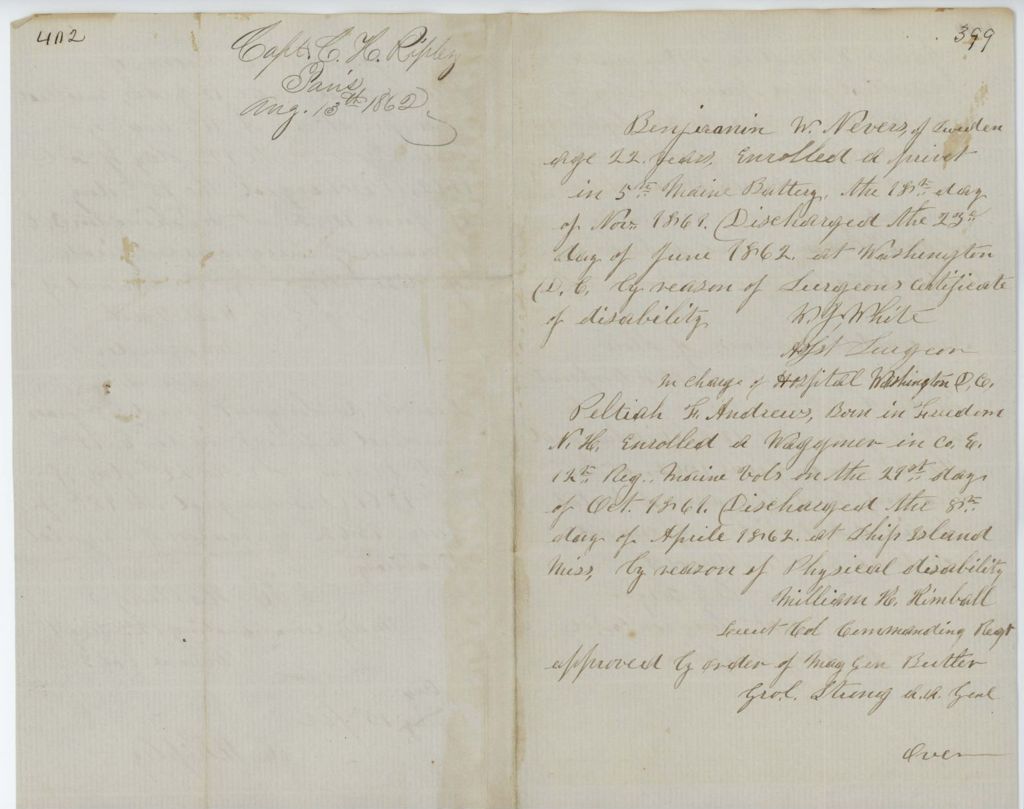 402
Capt. C. H. Ripley
Paris
Aug. 13th 1862
399
Benjiamin W. Nevers, of Sweden
age 22 years, Enrolled a privet
in 5th Maine Battery, the 18th day
of Nov. 1861. Discharged the 23d
day of June 1862. at Washington
D. C. by reason of Surgeons certificate
of disability W. J. White
Asst Surgeon
in charge of Hospital Washington D. C.
Peltiah F. Andrews, Born in Freedom
N. H. Enrolled a Waggoner in Co. E.
12th Reg. Maine Vols on the 21st day
of Oct. 1861. Discharged the 8th
day of Aprile 1862. at Ship Island
Miss, by reason of Physical disability
William K. Kimball
Lieut Col Commanding Regt
approved by order of Maj Gen Butler
Strong A. A. Genl
Over